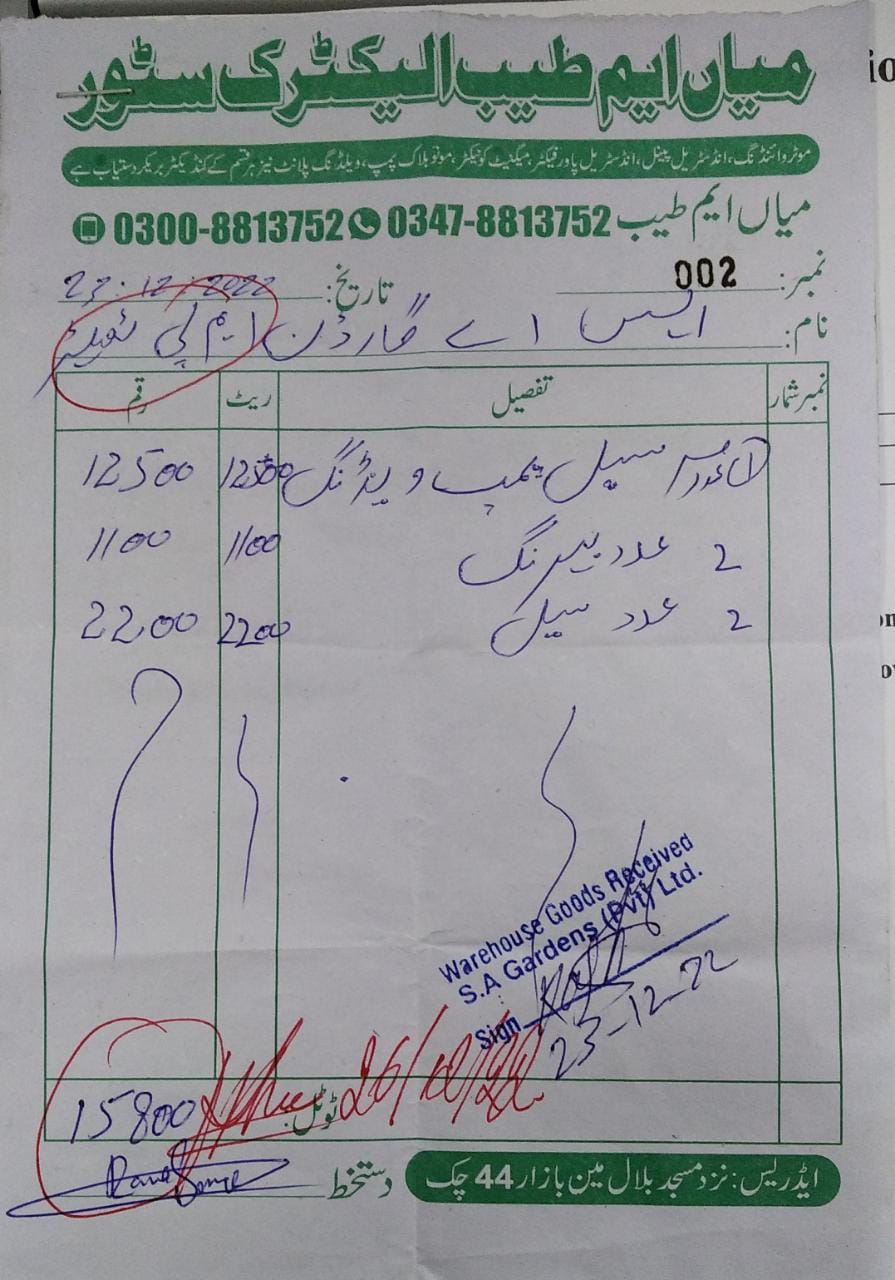 میاں ایم طیب الیکٹرک سٹور
موٹر وائنڈنگ، انڈسٹریل پینل، انڈسٹریل پاور فیکٹر، میگنیٹ کونیکٹر، مونو بلاک پمپ، ویلڈنگ پلانٹ نیز ہر قسم کے کنڈیکٹر بریکر دستیاب ہے
میاں ایم طیب 0347-8813752 0300-8813752
نمبر: 002 تاریخ: 23.12.2022
نام: ایس اے گارڈن ایم پی
نمبر شمار تفصیل ریٹ رقم
عدد پمپ 12500 12500
2 عدد بیرنگ 1100 1100
2 عدد سیل 2200 2200
Warehouse Goods Received
S.A Gardens (Pvt) Ltd.
Sign
23-12-22
ٹوٹل: 15800
26/12/22
دستخط
ایڈریس: نزد مسجد بلال مین بازار 44 چک